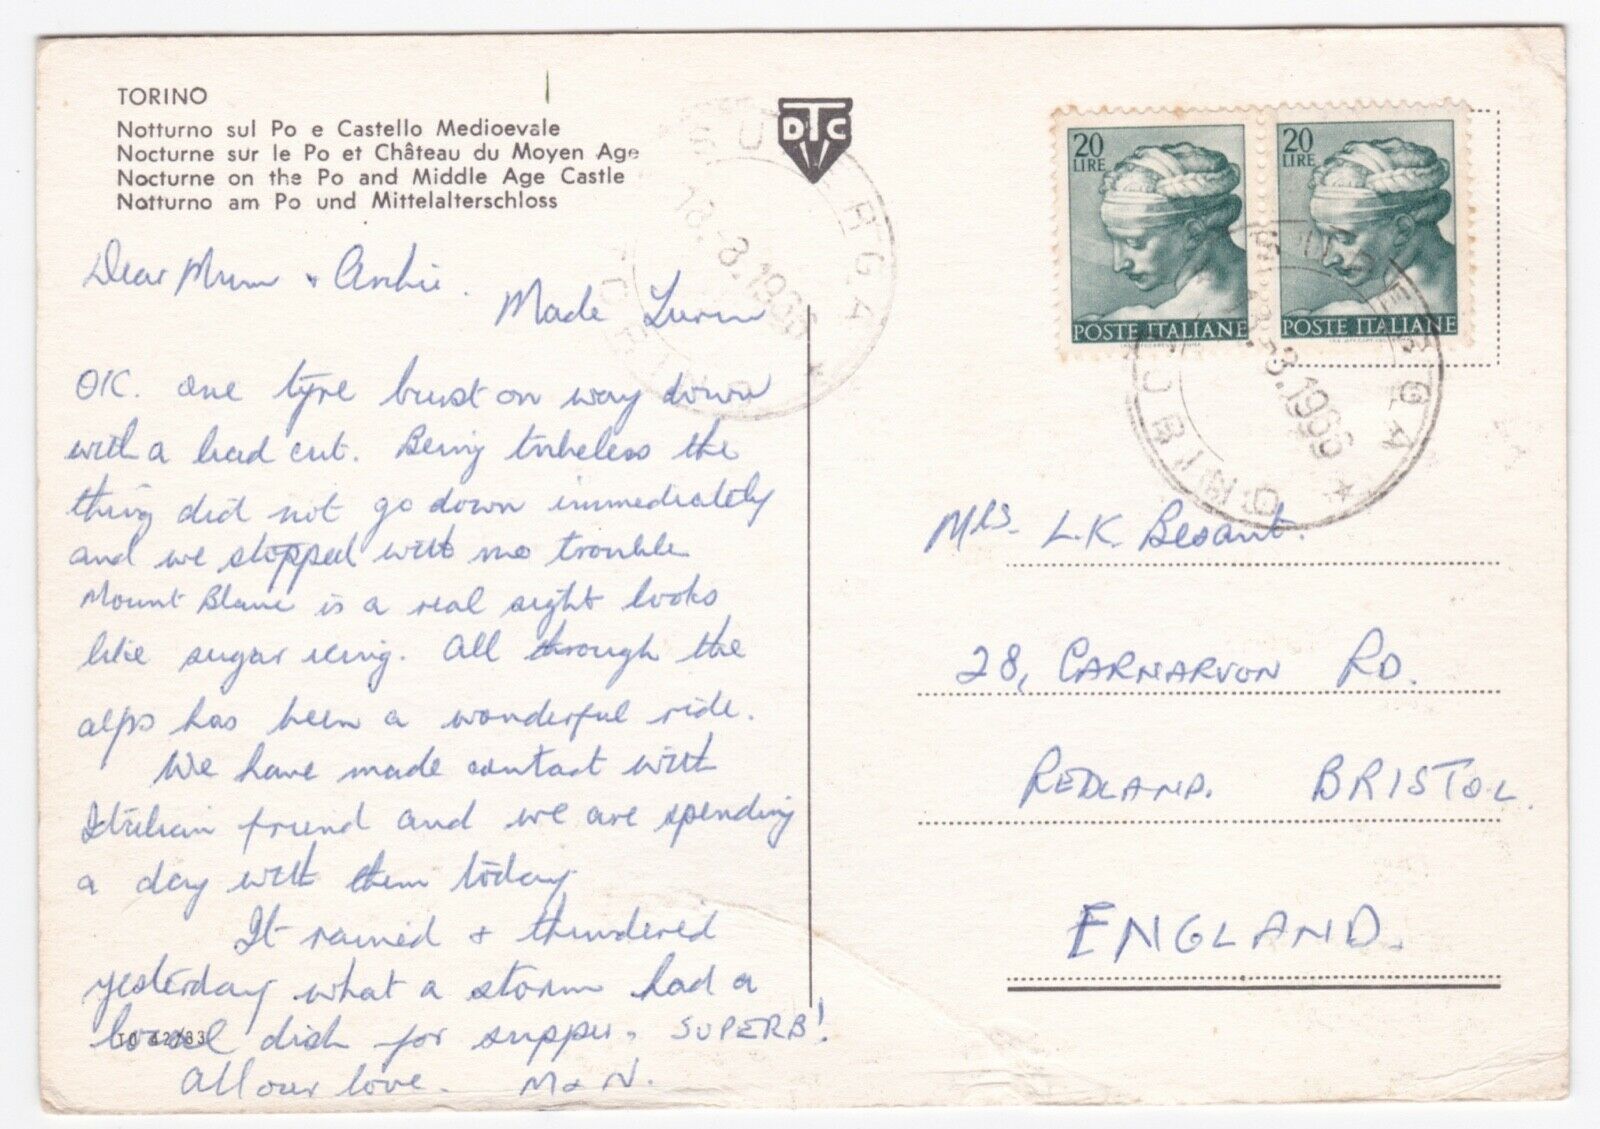 TORINO
Notturno sul Po e Castello Medioevale
Nocturne sur le Po et Château du Moyen Age
Nocturne on the Po and Middle Age Castle
Notturno am Po und Mittelalterschloss
DTC
20
LIRE
POSTE ITALIANE
20
LIRE
POSTE ITALIANE
SUPERGA
18.8.1966
TORINO
Dear Mum & Archie.
Made Turin
OK. one tyre burst on way down
with a bad cut. Being tubeless the
thing did not go down immediately
and we stopped with no trouble
Mount Blanc is a real sight looks
like sugar icing. All through the
alps has been a wonderful ride.
We have made contact with
Italian friend and we are spending
a day with them today.
It rained & thundered
yesterday what a storm had a
local dish for supper. SUPERB!
All our love. M & N.
TO 42/33
Mrs. L.K. Besant.
28, CARNARVON RD.
REDLAND. BRISTOL.
ENGLAND.